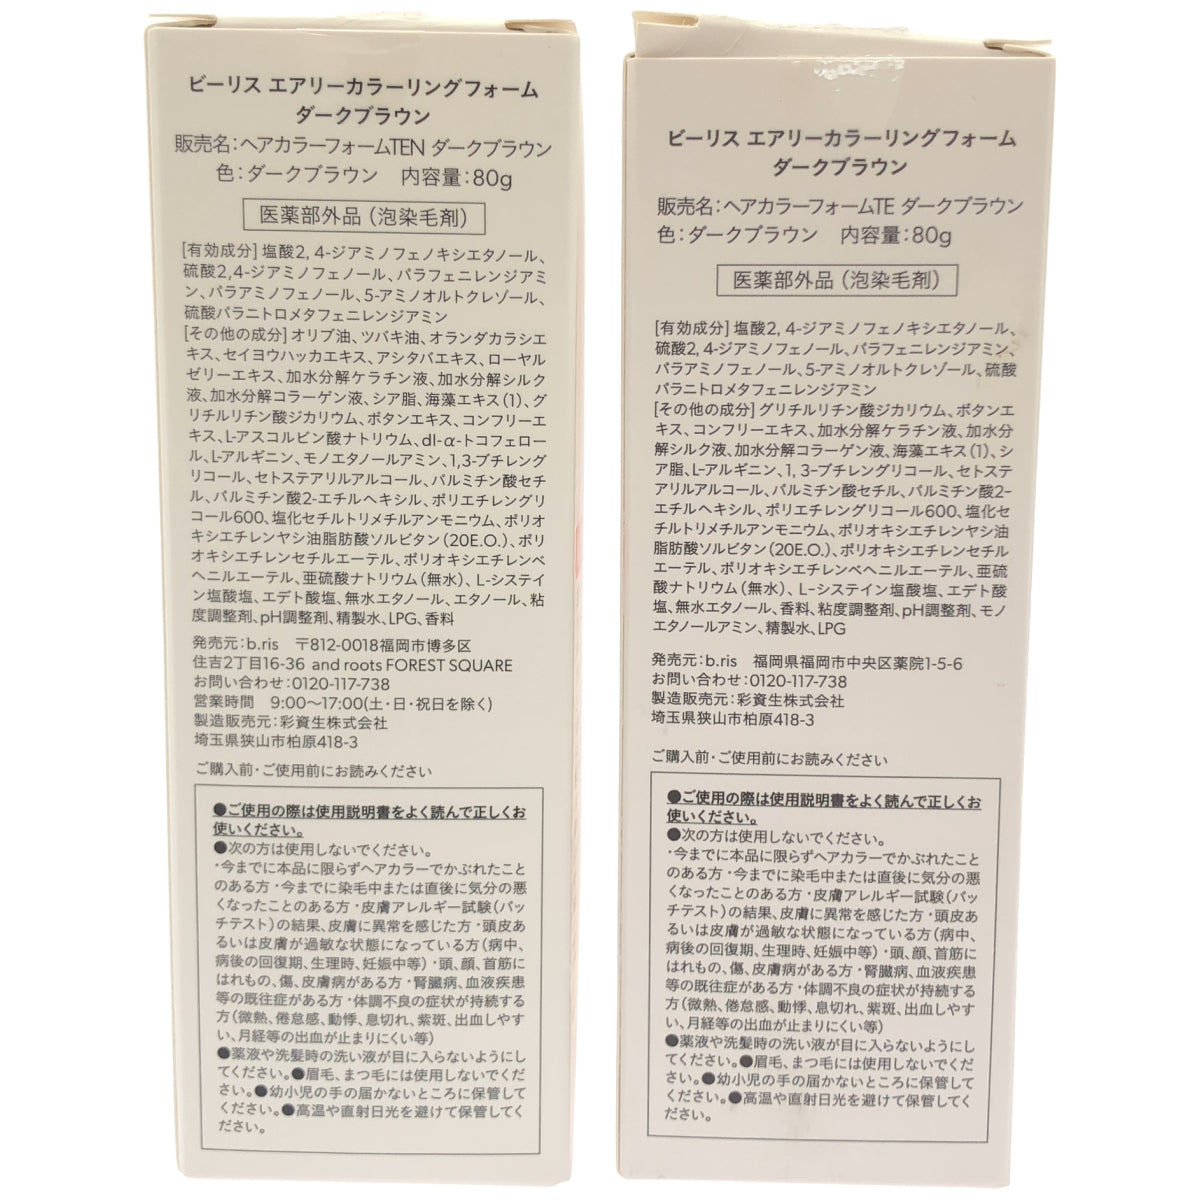 ビーリス エアリーカラーリングフォーム
ダークブラウン
販売名:ヘアカラーフォームTEN ダークブラウン
色:ダークブラウン 内容量:80g
医薬部外品(泡染毛剤)
[有効成分]塩酸2, 4-ジアミノフェノキシエタノール、
硫酸2,4-ジアミノフェノール、パラフェニレンジアミ
ン、パラアミノフェノール、5-アミノオルトクレゾール、
硫酸パラニトロメタフェニレンジアミン
[その他の成分]オリブ油、ツバキ油、オランダカラシエ
キス、セイヨウハッカエキス、アシタバエキス、ローヤル
ゼリーエキス、加水分解ケラチン液、加水分解シルク
液、加水分解コラーゲン液、シア脂、海藻エキス(1)、グ
リチルリチン酸ジカリウム、ボタンエキス、コンフリーエ
キス、L-アスコルビン酸ナトリウム、dl-α-トコフェロー
ル、L-アルギニン、モノエタノールアミン、1,3-ブチレング
リコール、セトステアリルアルコール、パルミチン酸セチ
ル、パルミチン酸2-エチルヘキシル、ポリエチレングリ
コール600、塩化セチルトリメチルアンモニウム、ポリオ
キシエチレンヤシ油脂肪酸ソルビタン(20E.O.)、ポリ
オキシエチレンセチルエーテル、ポリオキシエチレンベ
ヘニルエーテル、亜硫酸ナトリウム(無水)、L-システイ
ン塩酸塩、エデト酸塩、無水エタノール、エタノール、粘
度調整剤、pH調整剤、精製水、LPG、香料
発売元:b.ris 〒812-0018福岡市博多区
住吉2丁目16-36 and roots FOREST SQUARE
お問い合わせ:0120-117-738
営業時間 9:00〜17:00(土・日・祝日を除く)
製造販売元:彩資生株式会社
埼玉県狭山市柏原418-3
ご購入前・ご使用前にお読みください
●ご使用の際は使用説明書をよく読んで正しくお
使いください。
●次の方は使用しないでください。
・今までに本品に限らずヘアカラーでかぶれたこと
のある方・今までに染毛中または直後に気分の悪
くなったことのある方・皮膚アレルギー試験(パッ
チテスト)の結果、皮膚に異常を感じた方・頭皮あ
るいは皮膚が過敏な状態になっている方(病中、
病後の回復期、生理時、妊娠中等)・頭、顔、首筋に
はれもの、傷、皮膚病がある方・腎臓病、血液疾患
等の既往症がある方・体調不良の症状が持続する
方(微熱、倦怠感、動悸、息切れ、紫斑、出血しやす
い、月経等の出血が止まりにくい等)
●薬液や洗髪時の洗い液が目に入らないようにし
てください。●眉毛、まつ毛には使用しないでくだ
さい。●幼小児の手の届かないところに保管して
ください。●高温や直射日光を避けて保管してく
ださい。
ビーリス エアリーカラーリングフォーム
ダークブラウン
販売名:ヘアカラーフォームTE ダークブラウン
色:ダークブラウン 内容量:80g
医薬部外品(泡染毛剤)
[有効成分]塩酸2, 4-ジアミノフェノキシエタノール、
硫酸2, 4-ジアミノフェノール、パラフェニレンジアミン、
パラアミノフェノール、5-アミノオルトクレゾール、硫酸
パラニトロメタフェニレンジアミン
[その他の成分]グリチルリチン酸ジカリウム、ボタンエ
キス、コンフリーエキス、加水分解ケラチン液、加水分
解シルク液、加水分解コラーゲン液、海藻エキス(1)、シ
ア脂、L-アルギニン、1, 3-ブチレングリコール、セトステ
アリルアルコール、パルミチン酸セチル、パルミチン酸2-
エチルヘキシル、ポリエチレングリコール600、塩化セ
チルトリメチルアンモニウム、ポリオキシエチレンヤシ油
脂肪酸ソルビタン(20E.O.)、ポリオキシエチレンセチル
エーテル、ポリオキシエチレンベヘニルエーテル、亜硫
酸ナトリウム(無水)、L-システイン塩酸塩、エデト酸
塩、無水エタノール、香料、粘度調整剤、pH調整剤、モノ
エタノールアミン、精製水、LPG
発売元:b.ris 福岡県福岡市中央区薬院1-5-6
お問い合わせ:0120-117-738
製造販売元:彩資生株式会社
埼玉県狭山市柏原418-3
ご購入前・ご使用前にお読みください
●ご使用の際は使用説明書をよく読んで正しくお
使いください。
●次の方は使用しないでください。
・今までに本品に限らずヘアカラーでかぶれたこと
のある方・今までに染毛中または直後に気分の悪
くなったことのある方・皮膚アレルギー試験(パッ
チテスト)の結果、皮膚に異常を感じた方・頭皮あ
るいは皮膚が過敏な状態になっている方(病中、
病後の回復期、生理時、妊娠中等)・頭、顔、首筋に
はれもの、傷、皮膚病がある方・腎臓病、血液疾患
等の既往症がある方・体調不良の症状が持続する
方(微熱、倦怠感、動悸、息切れ、紫斑、出血しやす
い、月経等の出血が止まりにくい等)
●薬液や洗髪時の洗い液が目に入らないようにし
てください。●眉毛、まつ毛には使用しないでくだ
さい。●幼小児の手の届かないところに保管して
ください。●高温や直射日光を避けて保管してく
ださい。